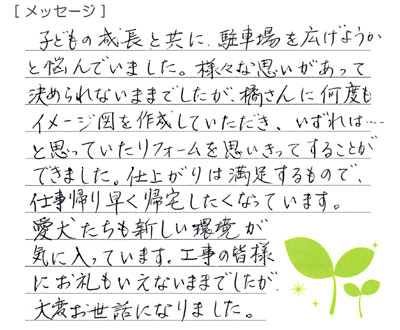 [メッセージ]
子どもの成長と共に、駐車場を広げようか
と悩んでいました。様々な思いがあって
決められないままでしたが、橘さんに何度も
イメージ図を作成していただき、いずれは……
と思っていたリフォームを思いきってすることが
できました。仕上がりは満足するもので、
仕事帰り早く帰宅したくなっています。
愛犬たちも新しい環境が
気に入っています。工事の皆様
にお礼もいえないままでしたが
大変お世話になりました。